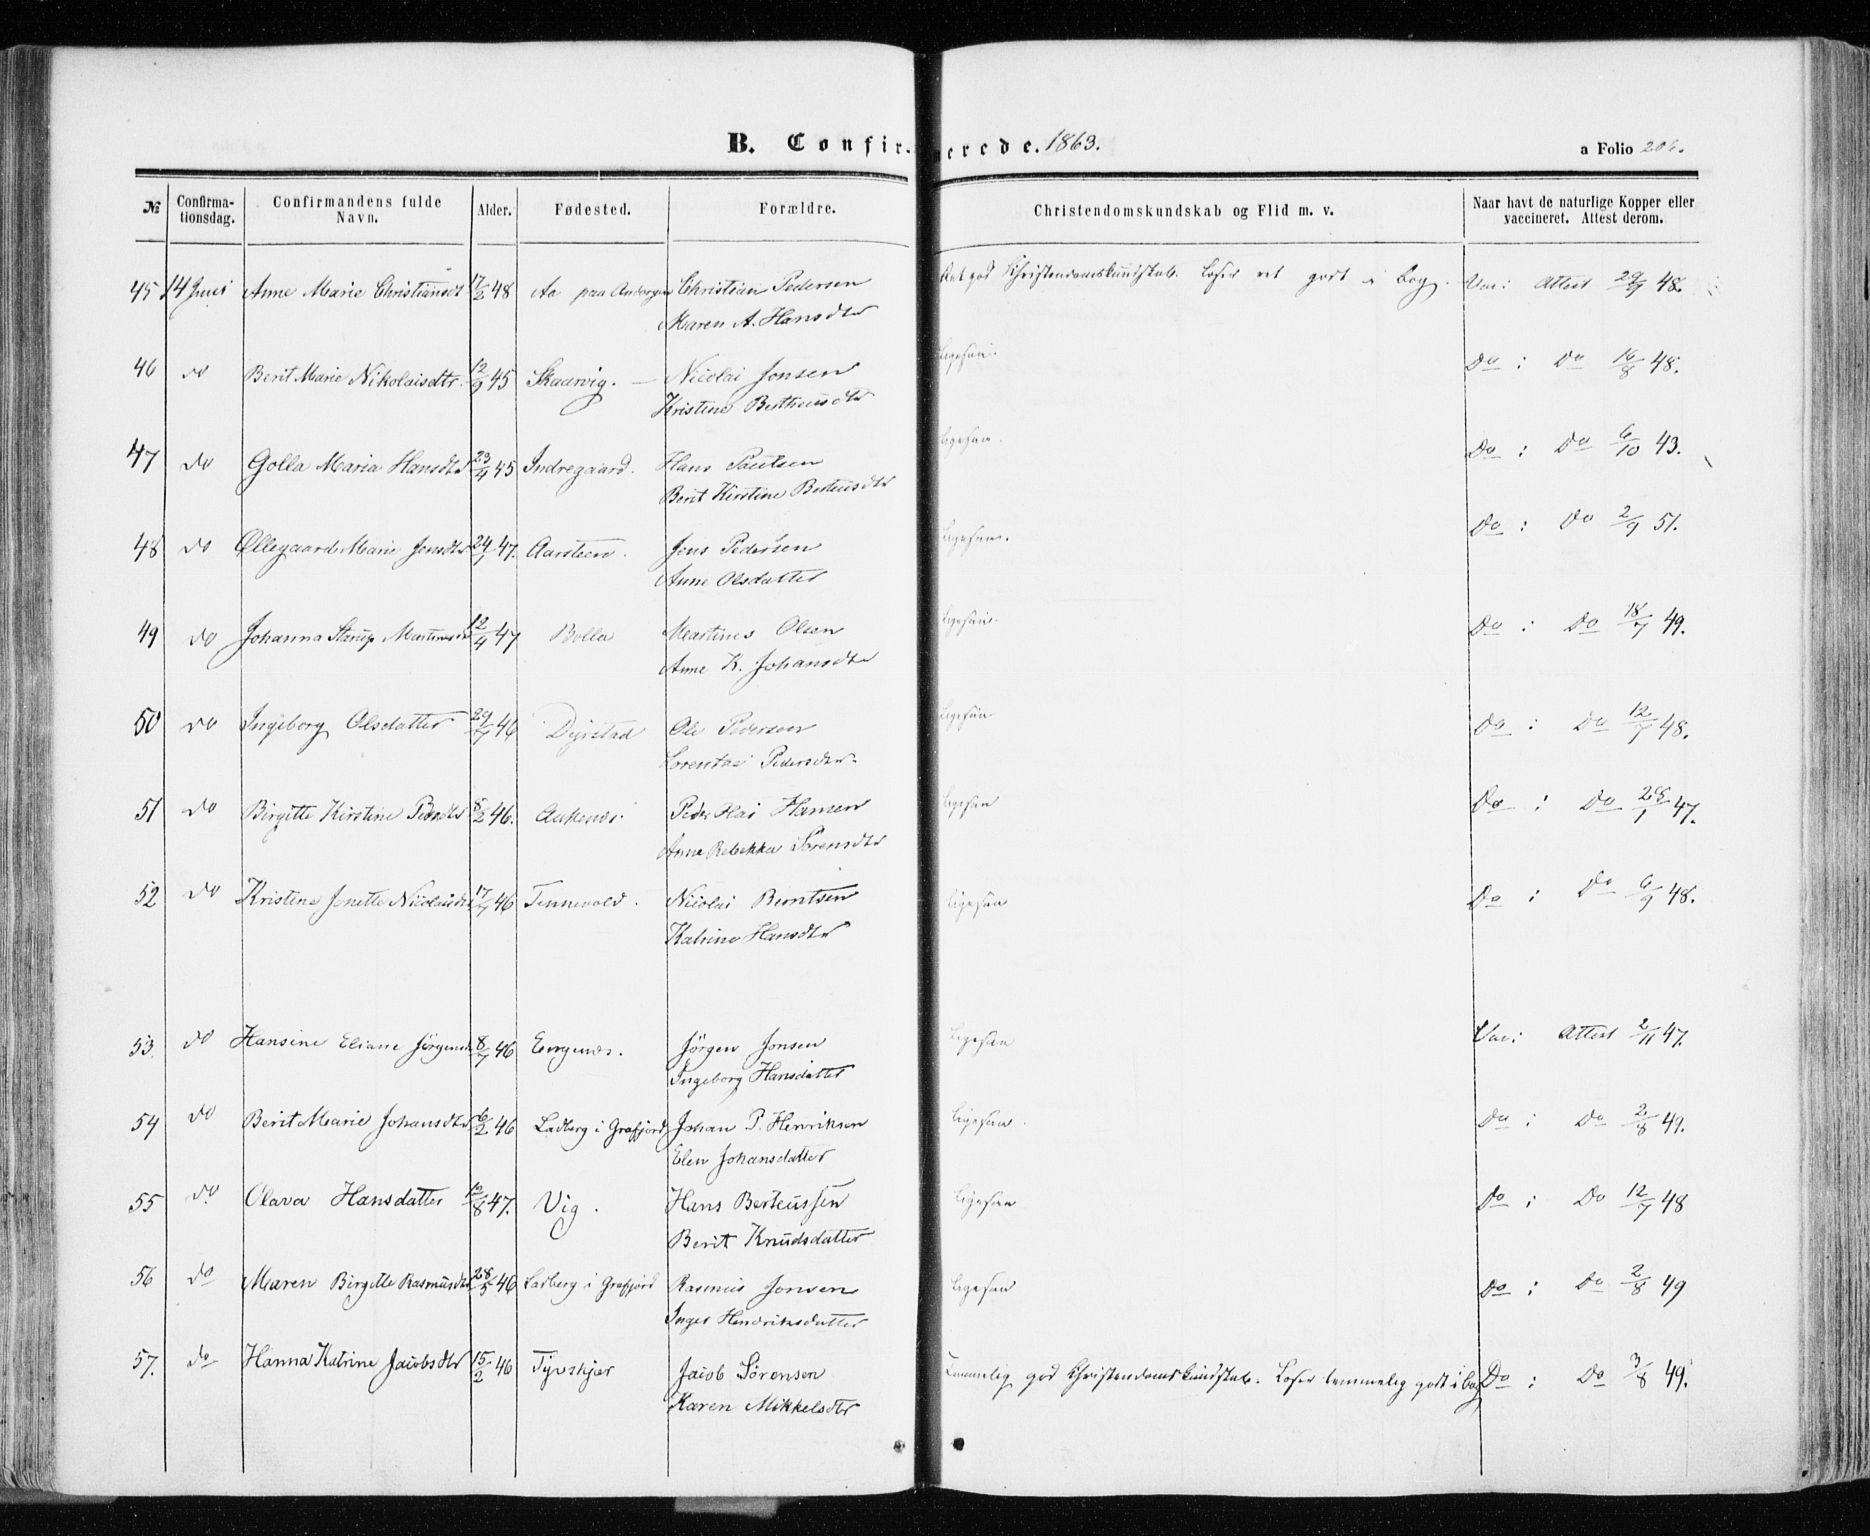 B. Confirmerede. 1863.
a Folio 206.
№ Confirma-tionsdag. Confirmandens fulde Navn. Alder. Fødested. Forældre. Christendomskundskab og Flid m. v. Naar havt de naturlige Kopper eller vaccineret. Attest derom.
45 14 Juni Anne Marie Christiansdt 17/2 48 Aa paa Andørgen Christian Pedersen Ret god Christendomskundskab. Læser ret godt i Bog. Vac: Attest 29/9 48.
Maren A. Hansdtr
46 do Berit Marie Nikolaisdtr. 12/9 45 Skaarvig. Nicolai Jonsen Ligesaa. Do : Do 16/8 48.
Kristine Bertheusdtr
47 do Golla Maria Hansdtr 23/4 45 Indregaard. Hans Paulsen Ligesaa. Do : Do 6/10 43.
Berit Kirstine Berteusdtr
48 do Øllegaard Marie Jensdtr 24/1 47. Aarsteen. Jens Pedersen Ligesaa. Do : Do 2/9 51.
Anne Olsdatter
49 do Johanna Starup Martines 12/4 47 Bolla Martines Olsen Ligesaa. Do : Do 18/7 49.
Anne K. Johansdtr
50 do Ingeborg Olsdatter 29/7 46 Dyrstad Ole Pedersen Ligesaa Do : Do 12/7 48.
Lorentze Pedersdtr.
51 do Birgitte Kirstine Pedsdtr 8/2 46. Aakenes. Peder Hansen Ligesaa Do : Do 28/1 47.
Anne Rebekka Sørensdtr
52 do Kristine Jonette Nicolaisdt 17/7 46 Tennevold. Nicolai Berntsen Ligesaa Do : Do 6/9 48.
Katrine Hansdtr
53. do Hansine Eliane Jørgensd 8/7 46 Engenes. Jørgen Jonsen Ligesaa Vac: Attest 2/11 47.
Ingeborg Hansdatter
54 do Berit Marie Johansdtr 6/2 46 Ladberg i Grafjord Johan P. Henriksen Ligesaa. Do : Do 2/8 49.
Elen Johansdatter
55 do. Olava Hansdatter 12/8 47. Vig. Hans Berteussen Ligesaa Do : Do 12/7 48
Berit Knudsdatter
56 do Maren Birgitte Rasmusdtr 28/5 46 Ladberg i Grafjord Rasmus Jonsen Ligesaa Do : Do 2/8 49
Inger Hendriksdatter
57. do Hanna Katrine Jacobsdtr 15/2 46 Tyvskjær Jacob Sørensen Temmelig god Christendomskundskab. Læser temmelig godt i bog Do : Do 3/8 49.
Karen Mikkelsdtr